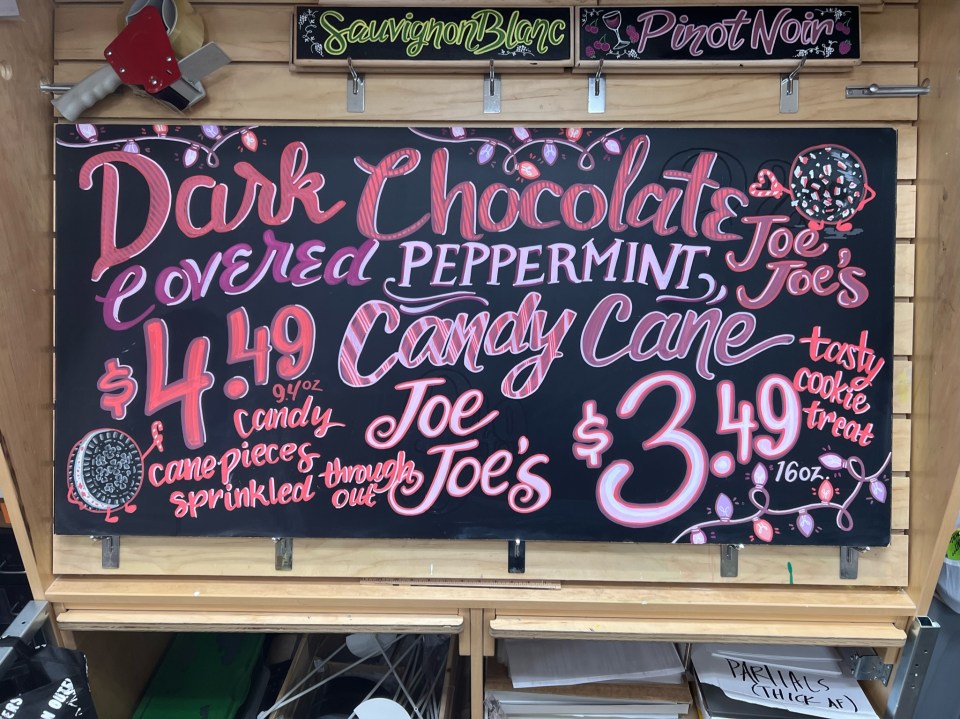 Sauvignon Blanc
Pinot Noir
Dark Chocolate
covered PEPPERMINT
Joe
Joe's
Candy Cane
Joe
Joe's
$4.49
9.4oz
candy
cane pieces
sprinkled through
out
$3.49
16oz
tasty
cookie
treat
PARTIALS
(THICK AF)